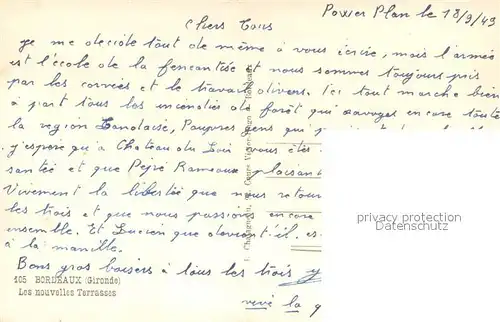 Power Plan le 18/9/43
Chers Tous
je me decide tout de même à vous écrire, mais l'armée
est l'école de la feneantise et nous sommes toujours pris
par les corvées et le travail divers. Ici tout marche bien
à part tous les incendies de forêt qui ravages encore toute
la region Landaise, Pauvres gens qui
j'espère qu'à Chateau du Loir vous êtes
santée et que Pépé Rameaux plaisant
Vivement la libertée que nous retour
les trois et que nous passions encore
ensemble. Et Lucien que devient-il, es
à la manille.
Bons gros baisers à tous les trois
vive la q
105 BORDEAUX (Gironde)
Les nouvelles Terrasses
privacy protection
Datenschutz